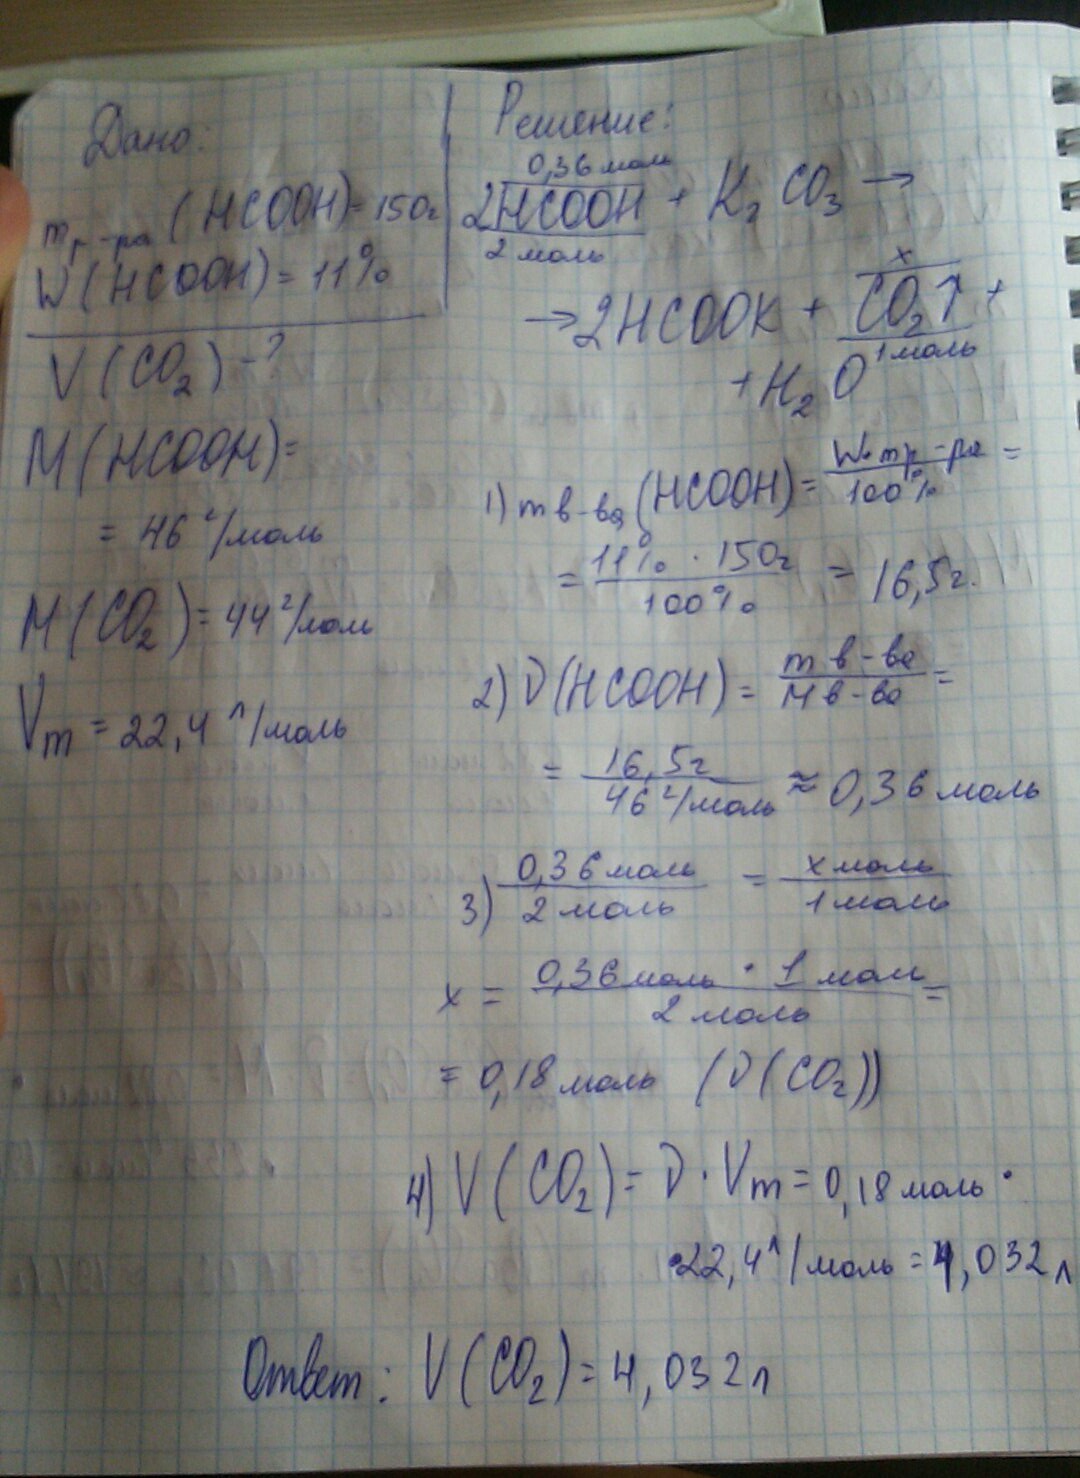 Дано:
m р-ра (HCOOH) = 150г
W(HCOOH) = 11%
V(CO₂) - ?
M(HCOOH) =
= 46 г/моль
M(CO₂) = 44 г/моль
Vm = 22,4 л/моль
Решение:
0,36 моль
2HCOOH + K₂CO₃ →
2 моль
x
→ 2HCOOK + CO₂↑ +
1 моль
+ H₂O
1) m в-ва (HCOOH) = W·m р-ра / 100% =
= 11% · 150г / 100% = 16,5г.
2) ν(HCOOH) = m в-ва / M в-ва =
= 16,5г / 46 г/моль ≈ 0,36 моль
3) 0,36 моль / 2 моль = x моль / 1 моль
x = 0,36 моль · 1 моль / 2 моль =
= 0,18 моль (ν(CO₂))
4) V(CO₂) = ν · Vm = 0,18 моль ·
·22,4 л/моль = 4,032 л
Ответ: V(CO₂) = 4,032 л